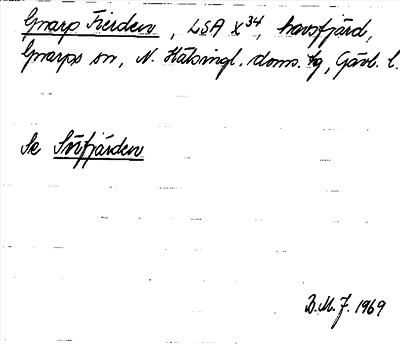 Gnarp Fierden, LSA X34, havsfjärd,
Gnarps sn, N. Hälsingl. doms. hg, Gävl. l.
Se Sörfjärden
B.M.J. 1969